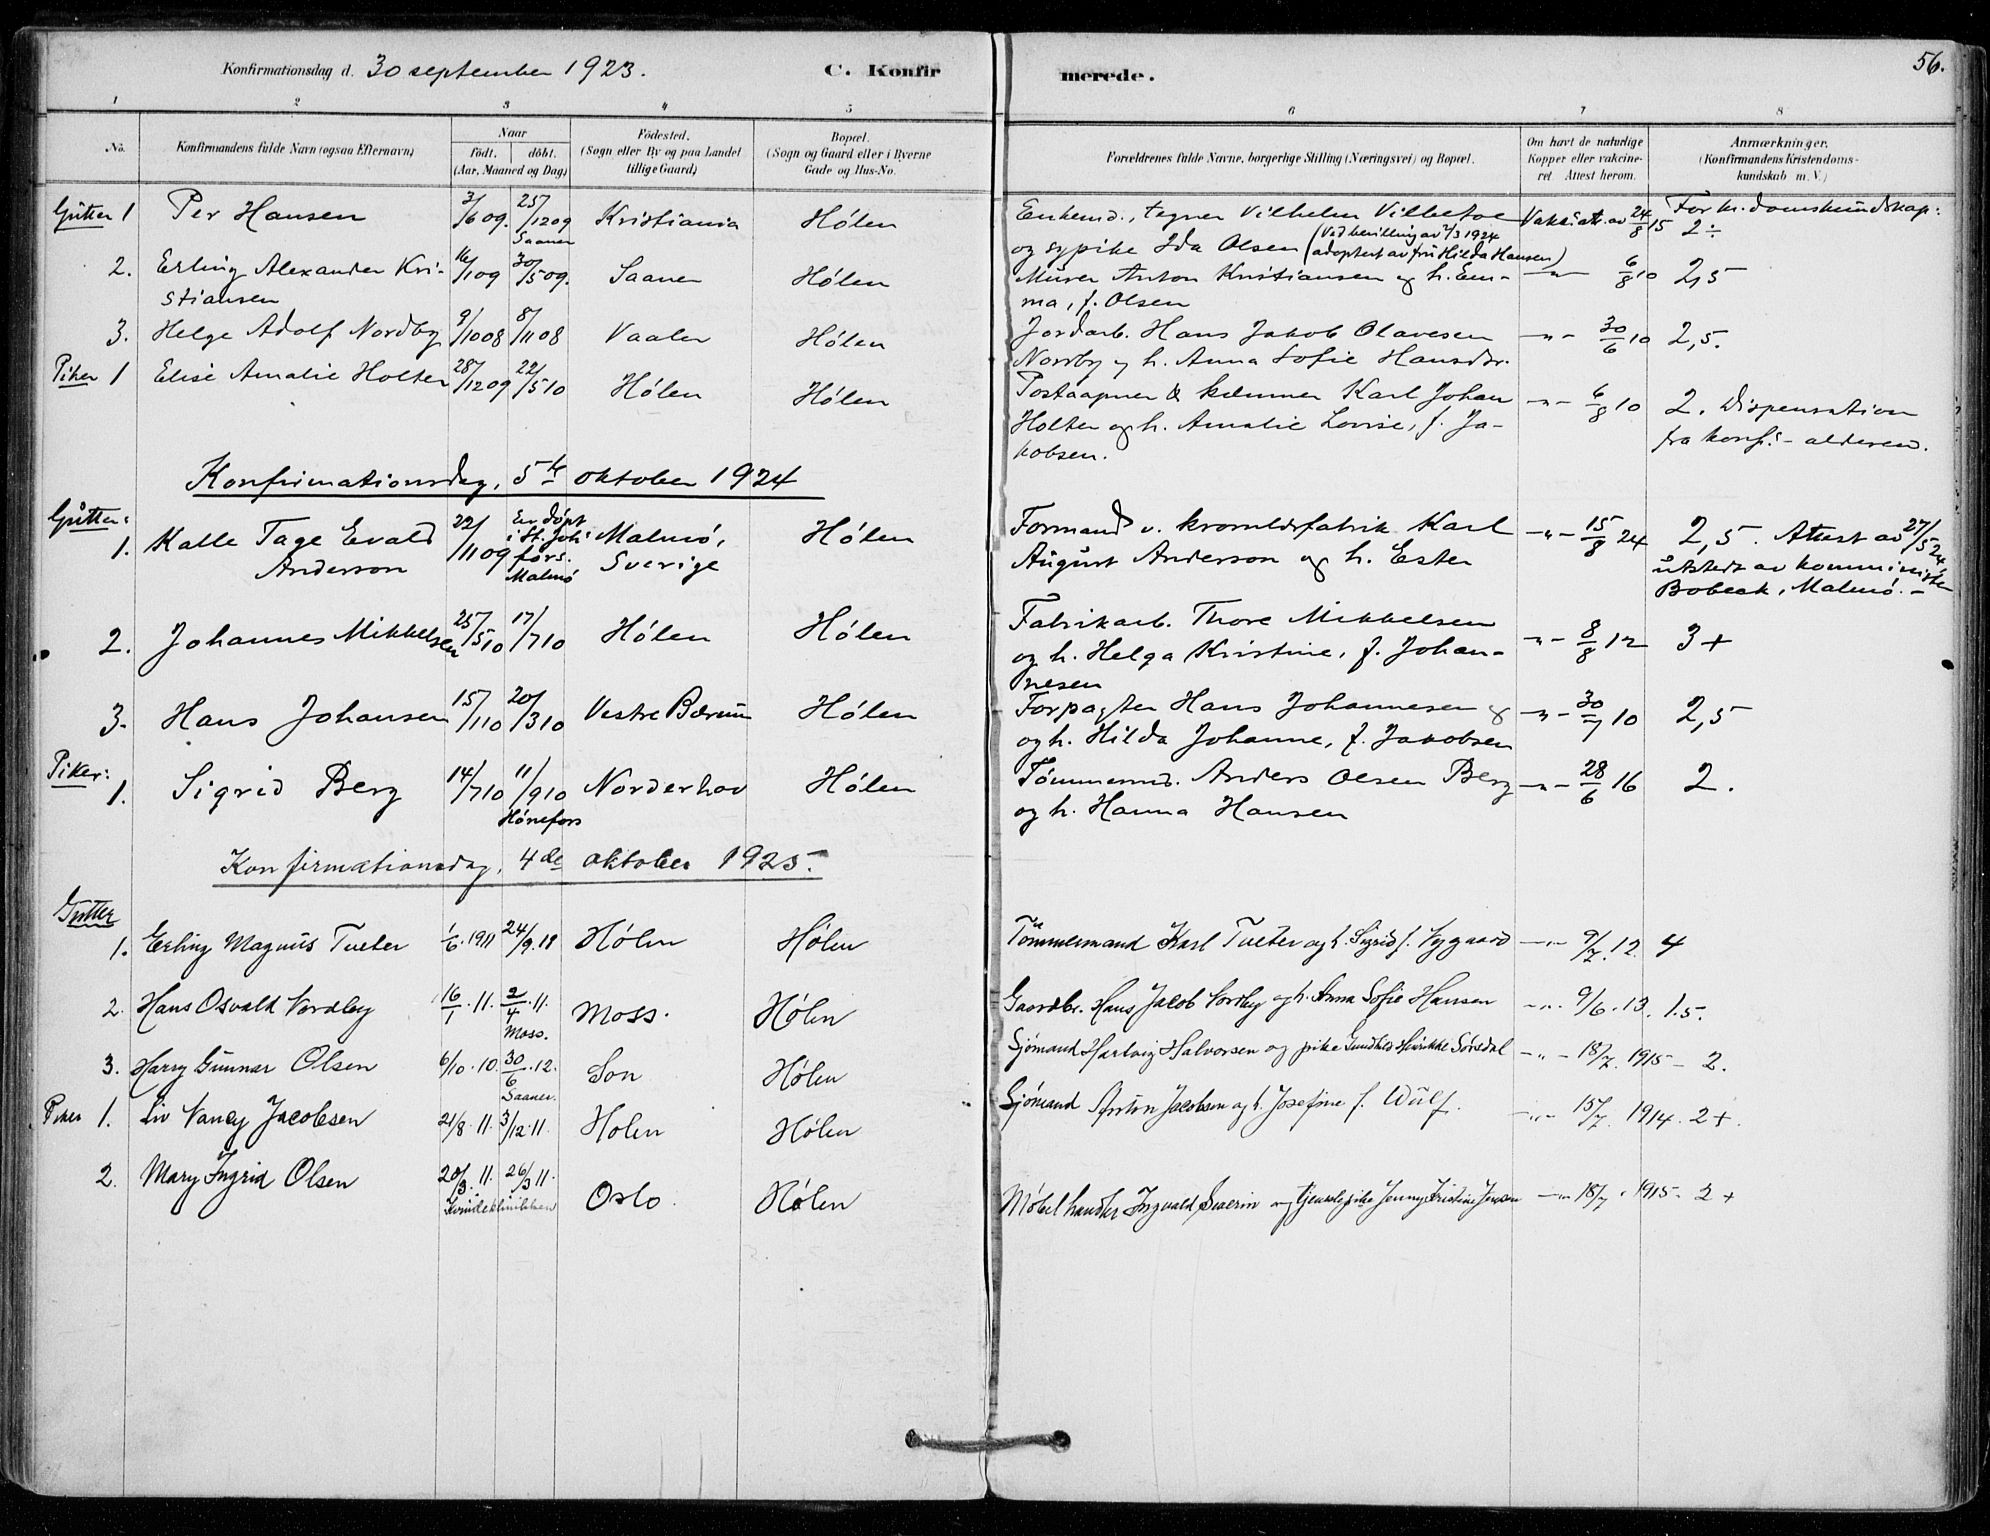 Konfirmationsdag d. 30 september 1923.
C. Konfirmerede.
56.
1 2 3 4 5 6 7 8
No.
Konfirmandens fulde Navn (ogsaa Efternavn)
Naar
födt. döbt.
(Aar, Maaned og Dag)
Födested.
(Sogn eller By og paa Landet
tillige Gaard)
Bopæl.
(Sogn og Gaard eller i Byerne
Gade og Hus-No.
Forældrenes fulde Navne, borgerlige Stilling (Næringsvei) og Bopæl.
Om havt de naturlige
Kopper eller vakcine-
ret Attest herom.
Anmærkninger.
(Konfirmandens Kristendoms-
kundskab m. V.)
Gutter 1 Per Hansen 3/6 09. 25/12 09 Saaner Kristiania Hølen
Enkemd., tegner Vilhelm Vilbefoe Vaksi att. av 24/8 15 For kr.domskundskap: 2÷
og sypike Ida Olsen (Ved bevilling av 7/3 1924
adoptert av fru Hilda Hansen)
2. Erling Alexander Kri-
stiansen 16/1 09 30/5 09. Saaner Hølen
Murer Anton Kristiansen og h. Em-
ma, f. Olsen —"— 6/8 10 2,5
3. Helge Adolf Nordby 9/10 08 8/11 08 Vaaler Hølen
Jordarb. Hans Jakob Olavesen
Nordby og h. Anna Sofie Hansdtr. —"— 30/6 10 2,5.
Piker 1 Elise Amalie Holter 28/12 09 22/5 10 Hølen Hølen
Postaapner & kæmner Karl Johan
Holter og h. Amalie Lovise, f. Ja-
kobsen. —"— 6/8 10 2. Dispensation
fra konf.-alderen.
Konfirmationsdag, 5te oktober 1924
Gutter:
1. Kalle Tage Evald
Anderson 22/11 09 Er døpt
i St. Joh.
førs.
Malmø Malmø,
Sverige Hølen
Formand v. kromlærfabrik Karl
August Anderson og h. Ester —"— 15/8 24 2,5. Attest av 27/5 24
utstedt av komminister
Bobeck, Malmø.—
2. Johannes Mikkelsen 25/5 10 17/7 10 Hølen Hølen
Fabrikarb. Thore Mikkelsen
og h. Helga Kristine, f. Johan-
nesen —"— 8/8 12 3+
3. Hans Johansen 15/1 10 20/3 10 Vestre Bærum Hølen
Forpagter Hans Johannesen og
og h. Hilda Johanne, f. Jakobsen —"— 30/7 10 2,5
Piker:
1. Sigrid Berg 14/7 10 11/9 10 Hønefoss Norderhov Hølen
Tømmermd. Anders Olsen Berg
og h. Hanna Hansen —"— 28/6 16 2.
Konfirmationsdag, 4de oktober 1925.
Gutter
1. Erling Magnus Tveter 1/6.1911 24/9.11 Hölen Hölen
Tömmermand Karl Tveter og h. Sigrid f. Nygaard —"— 9/7.12. 4
2. Hans Osvald Nordby 16/1.11. 2/4.11. Moss. Moss. Hölen
Gaardbr. Hans Jacob Nordby og h. Anna Sofie Hansen —"— 9/6.13. 1.5.
3. Harry Gunnar Olsen 6/10.10. 30/6.12. Saaner. Son Hölen
Sjömand Hartvig Halvorsen og pike Gunhild Henrikke Sörsdal —"— 18/7.1915— 2.
Piker 1. Liv Nancy Jacobsen 21/8.11. 3/12.11. Holen Hølen
Sjömand Anton Jacobsen og h. Josefine f. Wulf. —"— 15/7.1914. 2+.
2. Mary Ingrid Olsen 20/3.11. 26/3 11. Kvindeklinikken Oslo. Hölen
Möbelhandler Ingvald Severin og tjenestepike Jenny Kristine Jensen —"— 18/7.1915— 2+